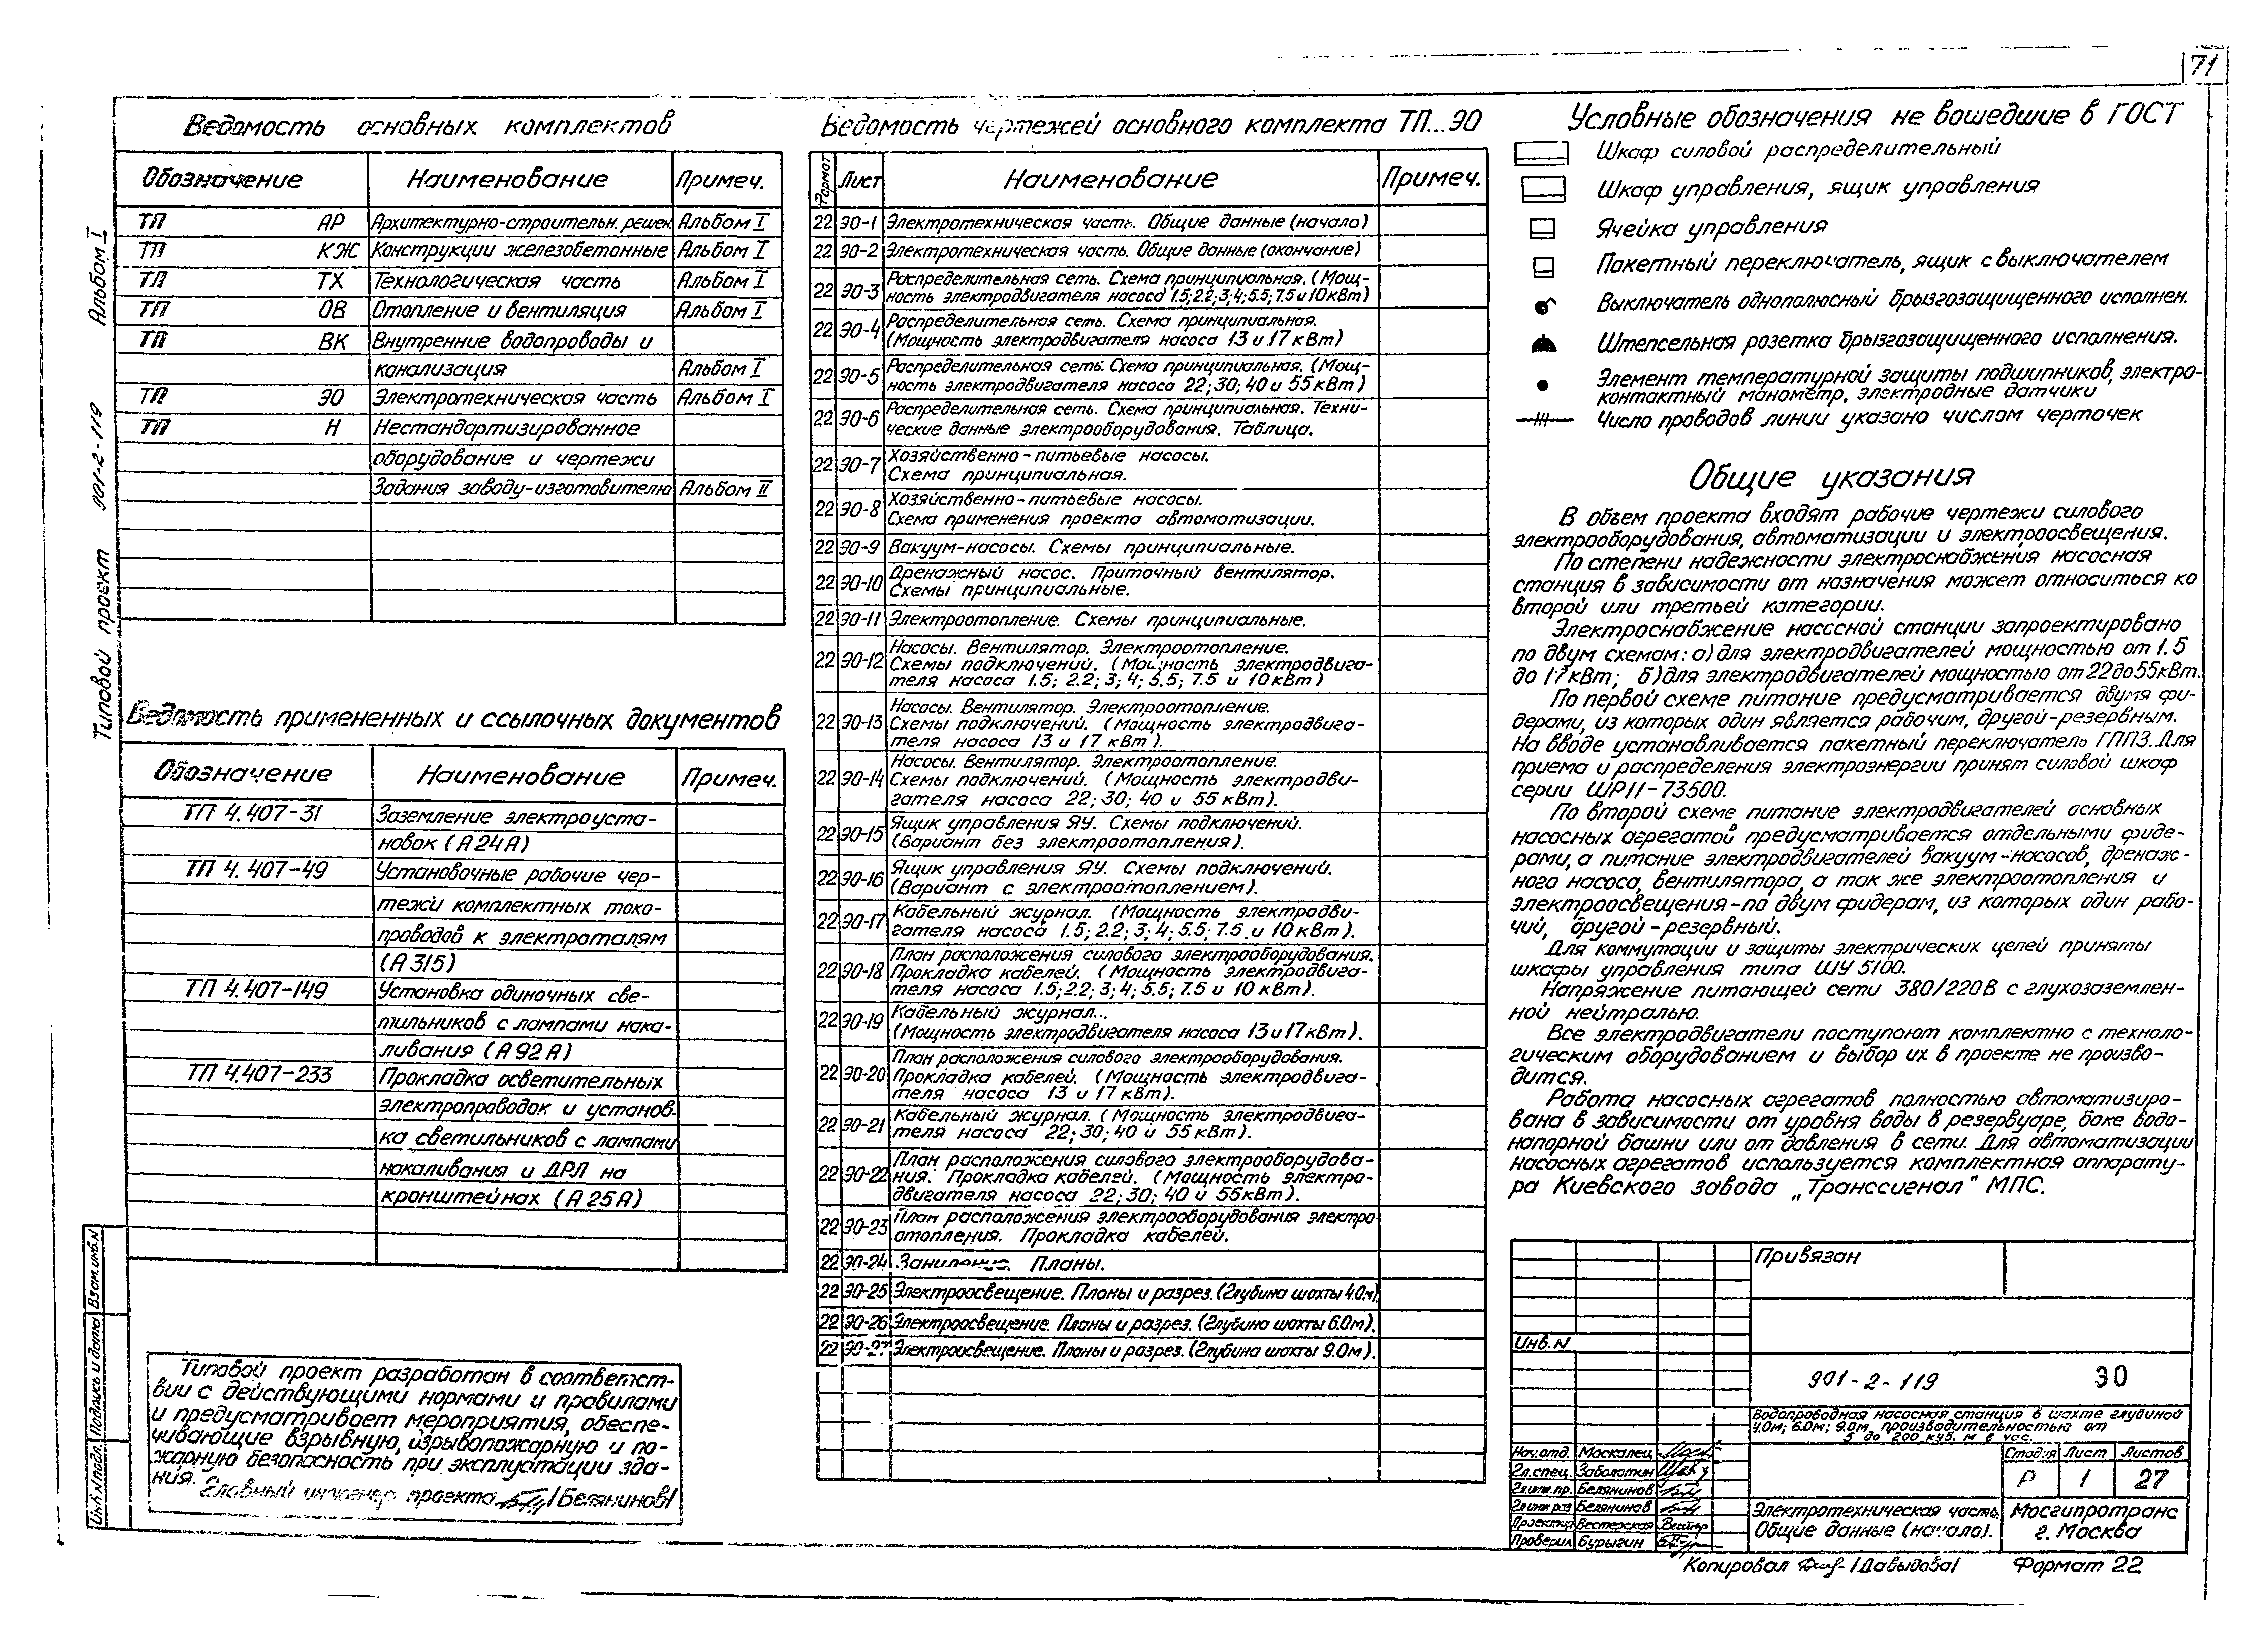 71
Альбом I
Типовой проект 901-2-119
Ведомость основных комплектов
Обозначение Наименование Примеч.
ТП АР Архитектурно-строительн. решен. Альбом I
ТП КЖ Конструкции железобетонные Альбом I
ТП ТХ Технологическая часть Альбом I
ТП ОВ Отопление и вентиляция Альбом I
ТП ВК Внутренние водопроводы и
канализация Альбом I
ТП ЭО Электротехническая часть Альбом I
ТП Н Нестандартизированное
оборудование и чертежи
Задания заводу-изготовителю Альбом II
Ведомость примененных и ссылочных документов
Обозначение Наименование Примеч.
ТП 4.407-31 Заземление электроуста-
новок (А24А)
ТП 4.407-49 Установочные рабочие чер-
тежи комплектных токо-
проводов к электроталям
(А315)
ТП 4.407-149 Установка одиночных све-
тильников с лампами нака-
ливания (А92А)
ТП 4.407-233 Прокладка осветительных
электропроводок и установ-
ка светильников с лампами
накаливания и ДРЛ на
кронштейнах (А25А)
Типовой проект разработан в соответст-
вии с действующими нормами и правилами
и предусматривает мероприятия, обеспе-
чивающие взрывную, взрывопожарную и по-
жарную безопасность при эксплуатации зда-
ния.
Главный инженер проекта /Белянинов/
Инв.N подл. Подпись и дата Взам. инв.N
Ведомость чертежей основного комплекта ТП...ЭО
Формат Лист Наименование Примеч.
22 ЭО-1 Электротехническая часть. Общие данные (начало)
22 ЭО-2 Электротехническая часть. Общие данные (окончание)
22 ЭО-3 Распределительная сеть. Схема принципиальная. (Мощ-
ность электродвигателя насоса 1.5; 2.2; 3; 4; 5.5; 7.5 и 10 кВт)
22 ЭО-4 Распределительная сеть. Схема принципиальная.
(Мощность электродвигателя насоса 13 и 17 кВт)
22 ЭО-5 Распределительная сеть. Схема принципиальная. (Мощ-
ность электродвигателя насоса 22; 30; 40 и 55 кВт)
22 ЭО-6 Распределительная сеть. Схема принципиальная. Техни-
ческие данные электрооборудования. Таблица.
22 ЭО-7 Хозяйственно-питьевые насосы.
Схема принципиальная.
22 ЭО-8 Хозяйственно-питьевые насосы.
Схема применения проекта автоматизации.
22 ЭО-9 Вакуум-насосы. Схемы принципиальные.
22 ЭО-10 Дренажный насос. Приточный вентилятор.
Схемы принципиальные.
22 ЭО-11 Электроотопление. Схемы принципиальные.
22 ЭО-12 Насосы. Вентилятор. Электроотопление.
Схемы подключений. (Мощность электродвига-
теля насоса 1.5; 2.2; 3; 4; 5.5; 7.5 и 10 кВт)
22 ЭО-13 Насосы. Вентилятор. Электроотопление.
Схемы подключений. (Мощность электродвига-
теля насоса 13 и 17 кВт).
22 ЭО-14 Насосы. Вентилятор. Электроотопление.
Схемы подключений. (Мощность электродви-
гателя насоса 22; 30; 40 и 55 кВт).
22 ЭО-15 Ящик управления ЯУ. Схемы подключений.
(Вариант без электроотопления).
22 ЭО-16 Ящик управления ЯУ. Схемы подключений.
(Вариант с электроотоплением).
22 ЭО-17 Кабельный журнал. (Мощность электродви-
гателя насоса 1.5; 2.2; 3; 4; 5.5; 7.5 и 10 кВт).
22 ЭО-18 План расположения силового электрооборудования.
Прокладка кабелей. (Мощность электродвига-
теля насоса 1.5; 2.2; 3; 4; 5.5; 7.5 и 10 кВт).
22 ЭО-19 Кабельный журнал...
(Мощность электродвигателя насоса 13 и 17 кВт).
22 ЭО-20 План расположения силового электрооборудования.
Прокладка кабелей. (Мощность электродвига-
теля насоса 13 и 17 кВт).
22 ЭО-21 Кабельный журнал. (Мощность электродвига-
теля насоса 22; 30; 40 и 55 кВт).
22 ЭО-22 План расположения силового электрооборудова-
ния. Прокладка кабелей. (Мощность электро-
двигателя насоса 22; 30; 40 и 55 кВт).
22 ЭО-23 План расположения электрооборудования электро
отопления. Прокладка кабелей.
22 ЭО-24 Планы.
22 ЭО-25 Электроосвещение. Планы и разрез. (Глубина шахты 4.0м).
22 ЭО-26 Электроосвещение. Планы и разрез. (Глубина шахты 6.0м).
22 ЭО-27 Электроосвещение. Планы и разрез. (Глубина шахты 9.0м).
Условные обозначения не вошедшие в ГОСТ
Шкаф силовой распределительный
Шкаф управления, ящик управления
Ячейка управления
Пакетный переключатель, ящик с выключателем
Выключатель однополюсный брызгозащищенного исполнен.
Штепсельная розетка брызгозащищенного исполнения.
Элемент температурной защиты подшипников, электро-
контактный манометр, электродные датчики
Число проводов линии указано числом черточек
Общие указания
В объем проекта входят рабочие чертежи силового
электрооборудования, автоматизации и электроосвещения.
По степени надежности электроснабжения насосная
станция в зависимости от назначения может относиться ко
второй или третьей категории.
Электроснабжение насосной станции запроектировано
по двум схемам: а) для электродвигателей мощностью от 1.5
до 17 кВт; б) для электродвигателей мощностью от 22 до 55 кВт.
По первой схеме питание предусматривается двумя фи-
дерами, из которых один является рабочим, другой-резервным.
На вводе устанавливается пакетный переключатель ГПП3. Для
приема и распределения электроэнергии принят силовой шкаф
серии ШР11-73500.
По второй схеме питание электродвигателей основных
насосных агрегатой предусматривается отдельными фиде-
рами, а питание электродвигателей вакуум-насосов, дренаж-
ного насоса, вентилятора, а так же электроотопления и
электроосвещения-по двум фидерам, из которых один рабо-
чий, другой-резервный.
Для коммутации и защиты электрических цепей приняты
шкафы управления типа ШУ 5100.
Напряжение питающей сети 380/220 В с глухозаземлен-
ной нейтралью.
Все электродвигатели поступают комплектно с техноло-
гическим оборудованием и выбор их в проекте не произво-
дится.
Работа насосных агрегатов полностью автоматизиро-
вана в зависимости от уровня воды в резервуаре, баке водо-
напорной башни или от давления в сети. Для автоматизации
насосных агрегатов используется комплектная аппарату-
ра Киевского завода „Транссигнал" МПС.
Привязан
Инв.N
901-2-119 ЭО
Водопроводная насосная станция в шахте глубиной
4.0м; 6.0м; 9.0м, производительностью от
5 до 200 куб. м в час.
Нач.отд. Москалец
Гл.спец. Заболотин
Гл.инж.пр. Белянинов
Гл.инж.раз Белянинов
Проектир Вестерская
Проверил Бурыгин
Стадия Лист Листов
Р 1 27
Электротехническая часть.
Общие данные (начало).
Мосгипротранс
г. Москва
Копировал /Давыдова/ Формат 22